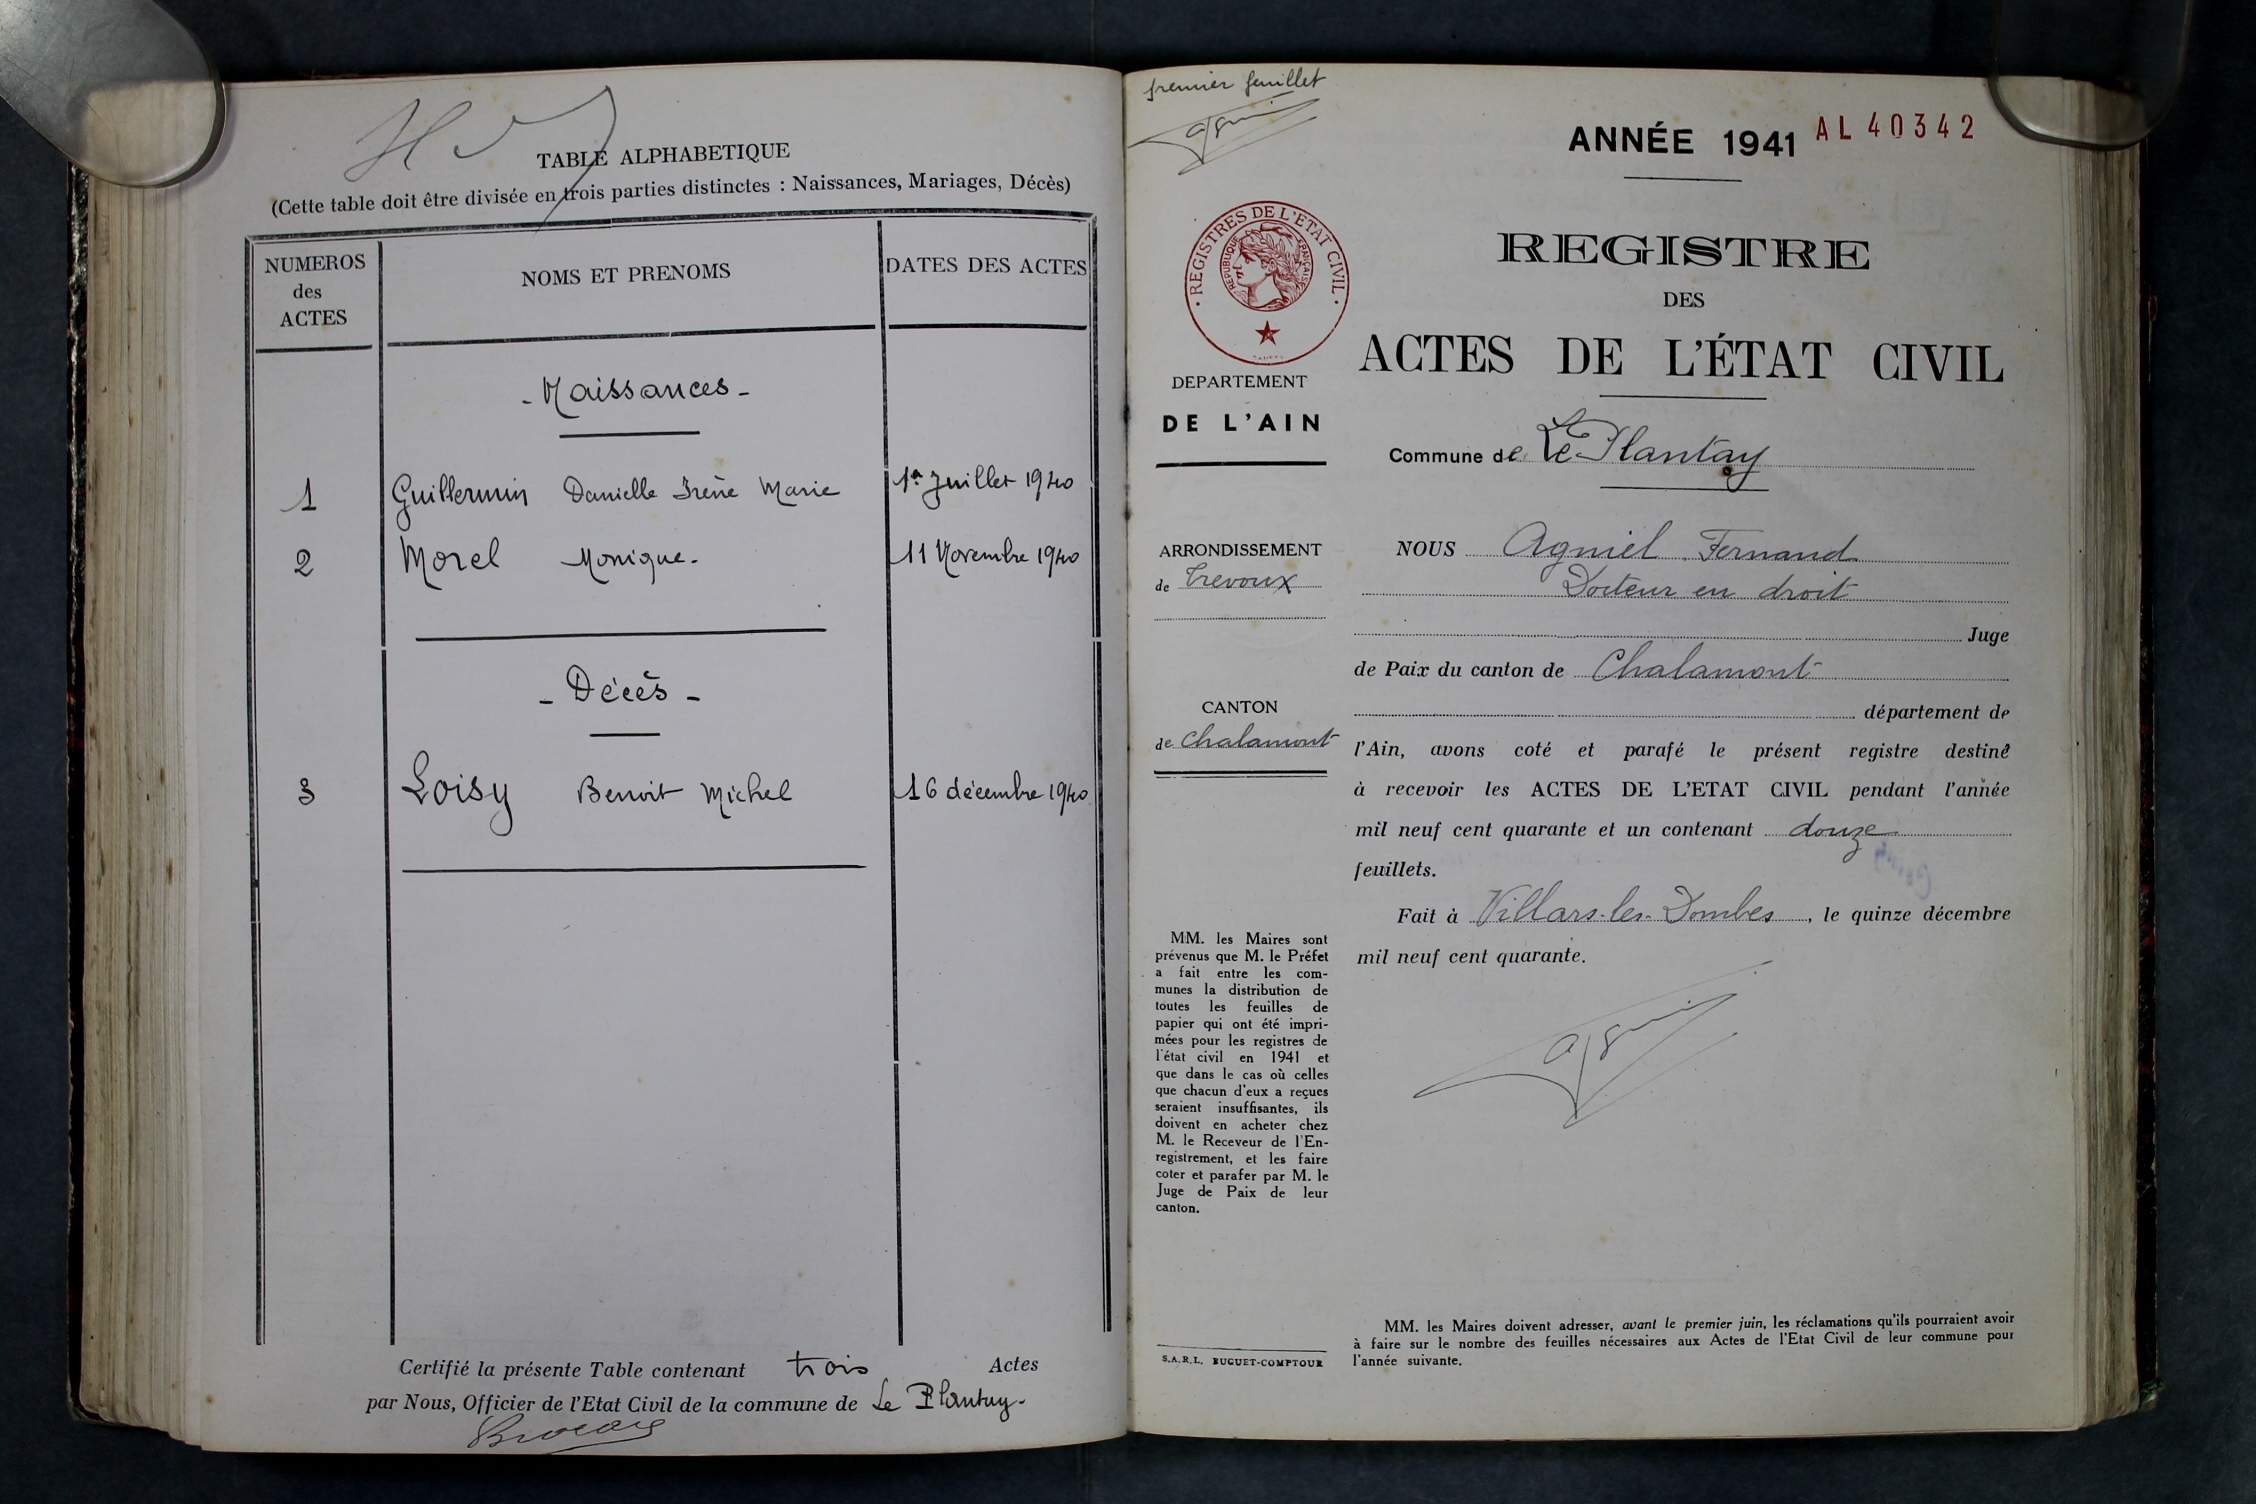 TABLE ALPHABETIQUE
(Cette table doit être divisée en trois parties distinctes : Naissances, Mariages, Décès)
NUMEROS des ACTES
NOMS ET PRENOMS
DATES DES ACTES
- Naissances -
1 Guillermin Danielle Irène Marie 1er Juillet 1940
2 Morel Monique. 11 Novembre 1940
- Décès -
3 Loisy Benoit Michel 16 décembre 1940
Certifié la présente Table contenant trois Actes
par Nous, Officier de l'Etat Civil de la commune de Le Plantay.
premier feuillet
ANNÉE 1941 AL 40342
REGISTRES DE L'ETAT CIVIL
REPUBLIQUE FRANÇAISE
REGISTRE
DES
ACTES DE L'ÉTAT CIVIL
DEPARTEMENT
DE L'AIN
Commune de Le Plantay
ARRONDISSEMENT
de Trevoux
CANTON
de Chalamont
NOUS Agniel Fernand
Docteur en droit
Juge
de Paix du canton de Chalamont
département de
l'Ain, avons coté et parafé le présent registre destiné
à recevoir les ACTES DE L'ETAT CIVIL pendant l'année
mil neuf cent quarante et un contenant douze
feuillets.
Fait à Villars-les-Dombes, le quinze décembre
mil neuf cent quarante.
MM. les Maires sont
prévenus que M. le Préfet
a fait entre les com-
munes la distribution de
toutes les feuilles de
papier qui ont été impri-
mées pour les registres de
l'état civil en 1941 et
que dans le cas où celles
que chacun d'eux a reçues
seraient insuffisantes, ils
doivent en acheter chez
M. le Receveur de l'En-
registrement, et les faire
coter et parafer par M. le
Juge de Paix de leur
canton.
S.A.R.L. BUGUET-COMPTOUR
MM. les Maires doivent adresser, avant le premier juin, les réclamations qu'ils pourraient avoir
à faire sur le nombre des feuilles nécessaires aux Actes de l'Etat Civil de leur commune pour
l'année suivante.